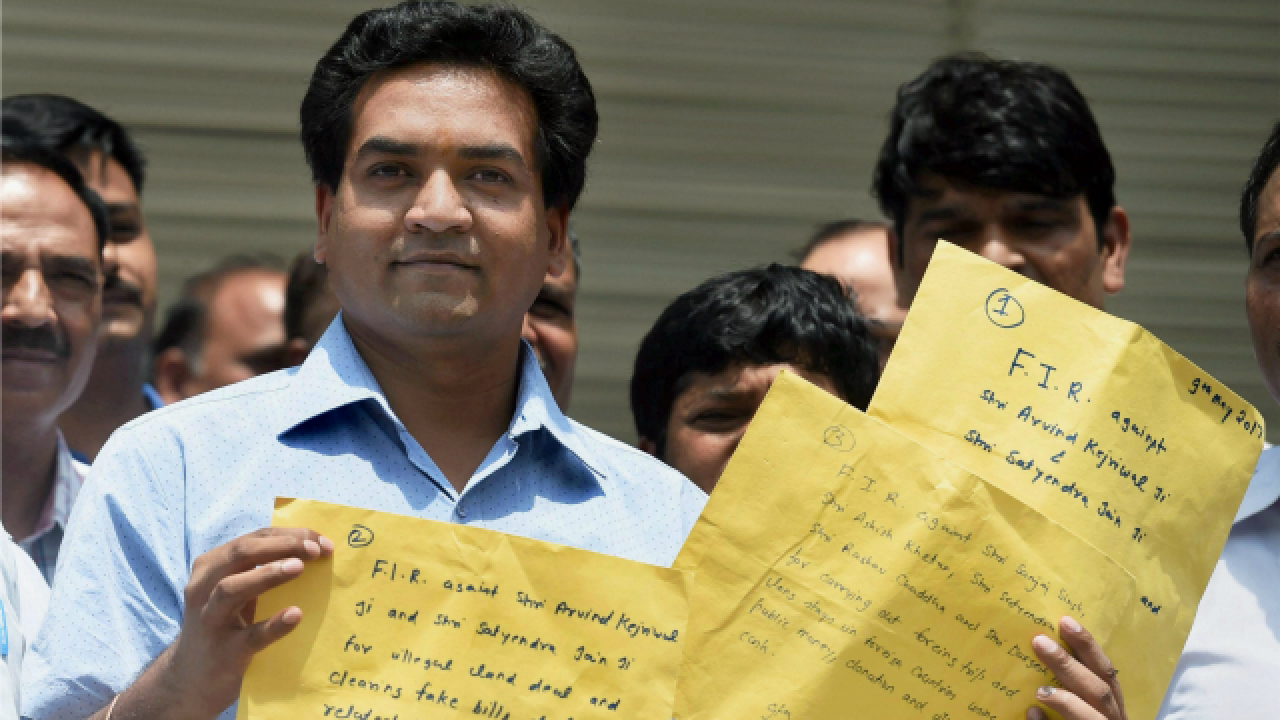 ①
9 May 2017
F.I.R. against
Shri Arvind Kejriwal Ji
&
Shri Satyendra Jain Ji
and
②
F.I.R. against Shri Arvind Kejriwal
Ji and Shri Satyendra Jain Ji
for illegal land deal and
cleaning fake bills
③
F.I.R. against Shri Sanjay Singh,
Shri Ashish Khetan, Shri Satyendra
Shri Raghav Chaddha and Shri Durgesh
for carrying out foreing trips and
stays in foreign Countries using
Public money, donation and
Cash.